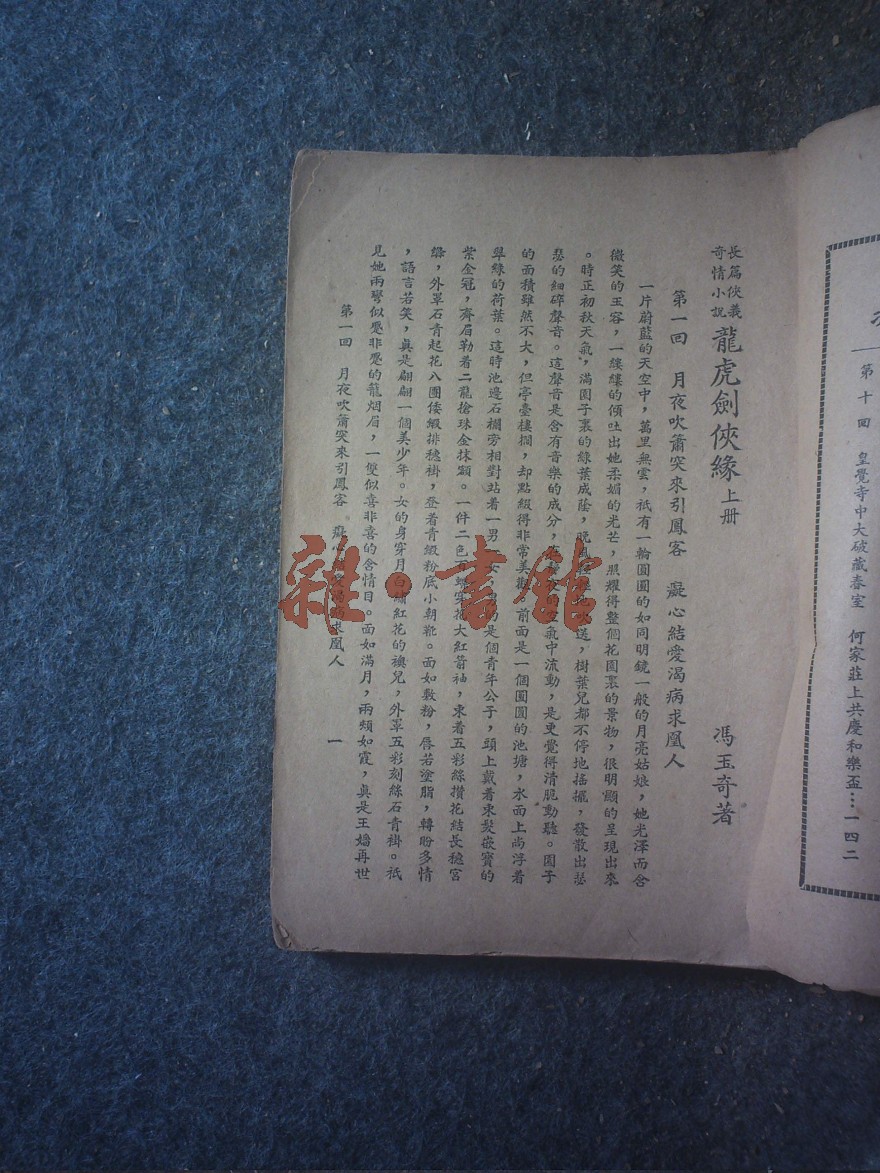 第十回　皇覺寺中大破藏春室　何家莊上共慶和樂盃…一四二
長篇俠義
奇情小說
龍虎劍俠緣　上册
馮玉奇著
第一回　月夜吹簫突來引鳳客　凝心結愛渴病求凰人
一片蔚藍的天空中，萬里無雲，祇有一輪圓圓的如同明鏡一般的月亮姑娘，她光澤而含
微笑的玉容，一縷縷的傾吐出她柔媚的光芒，照耀得整個花園裏的景物，很明顯的呈現出來
。時正初秋天氣，滿園子裏的綠葉成蔭，晚風
地吹送，樹葉兒都不停地搖擺，發散出瑟
瑟的細碎聲音。這聲音是含有音樂的成分，在
的空氣中流動，是更覺得清脆動聽。園子
的面積雖然不大，但亭臺樓閣，却點綴得非常美觀。前面是一個圓圓的池塘，水面上尚浮着
翠綠的荷葉。這時池邊石欄旁相對站着一男一女，男的是個青年公子，頭上戴着束髮嵌寶的
紫金冠，齊眉勒着二龍搶珠金抹額。一件二色百蝶穿花大紅箭袖，束着五彩絲攢花結長穗宮
縧，外罩石青起花八團倭緞排穗褂，登着青緞粉底小朝靴。面如敷粉，唇若塗脂，轉盼多情
，語言若笑，眞是翩翩一個美少年。女的身穿月白繡紅花的襖兒，外罩五彩刻絲石青褂。祇
見她兩彎似蹙非蹙的籠烟眉，一雙似喜非喜的含情目。面如滿月，兩頰如霞，眞是王嬙再世
第一回　月夜吹簫突來引鳳客　凝心結愛渴病求凰人
一
雜·書館